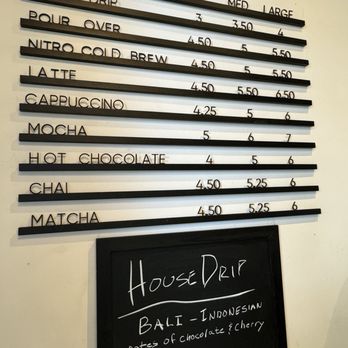 MED LARGE
DRIP 3 3.50 4
POUR OVER 4.50 5 5.50
NITRO COLD BREW 4.50 5 5.50
LATTE 4.50 5.50 6.50
CAPPUCCINO 4.25 5 6
MOCHA 5 6 7
HOT CHOCOLATE 4 5 6
CHAI 4.50 5.25 6
MATCHA 4.50 5.25 6
HOUSE DRIP
BALI - INDONESIAN
notes of chocolate & cherry